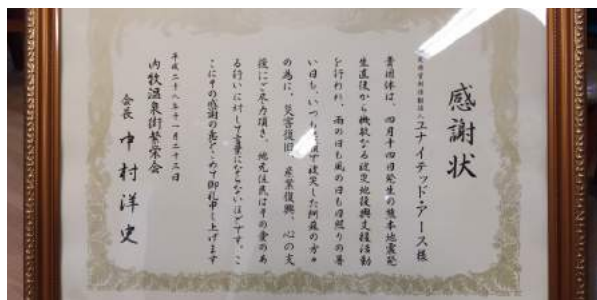 感謝状
特定非営利活動法人ユナイテッド・アース様
貴団体は、四月十四日発生の熊本地震発
生直後から機敏なる被災地復興支援活動
を行われ、雨の日も風の日も日照りの暑
い日も、いつも笑顔で被災した阿蘇の方々
の為に、災害復旧、産業復興、心の支
援にご尽力頂き、地元住民はその愛のあ
る行いに対して言葉になどない位です。こ
こにその感謝の意をこめて御礼申し上げます
平成二十八年十一月二十三日
内牧温泉街繁栄会
会長 中村洋史